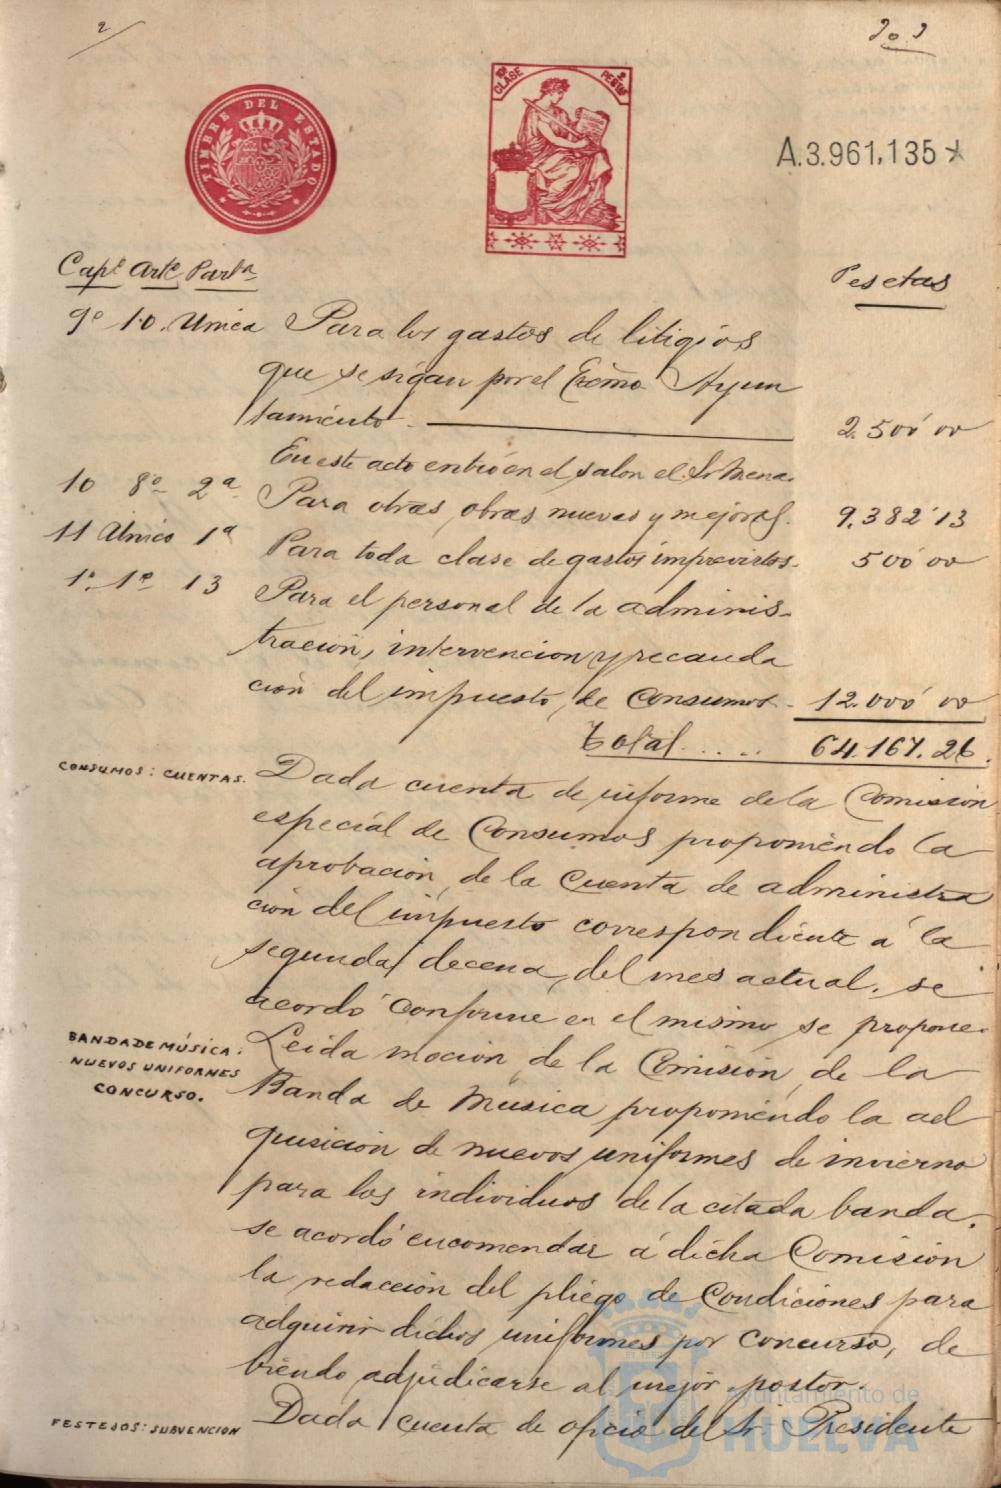 2
202
TIMBRE DEL ESTADO
10ª CLASE 2 PESETAS
A.3.961,135*
Capº Artº Partª
Pesetas
9º 10. Unica Para los gastos de litigios
que se sigan por el Excmo Ayun
tamiento. 2.500'00
En este acto entró en el salon el Sr. Mena.
10 8º 2ª Para otras obras nuevas y mejoras. 9.382'13
11 Unico 1ª Para toda clase de gastos imprevistos. 500'00
1º 1º 13 Para el personal de la adminis-
tración, intervencion y recauda
ción del impuesto de Consumos. 12.000'00
Total..... 64.167.26.
CONSUMOS: CUENTAS.
Dada cuenta de informe de la Comision
especial de Consumos proponiendo la
aprobación de la cuenta de administra
ción del impuesto correspondiente á la
segunda decena del mes actual. se
acordó conforme en el mismo se propone.
BANDA DE MÚSICA:
NUEVOS UNIFORMES
CONCURSO.
Leida moción de la Comisión de la
Banda de Música proponiendo la ad
quisición de nuevos uniformes de invierno
para los individuos de la citada banda.
se acordó encomendar á dicha Comisión
la redacción del pliego de Condiciones para
adquirir dichos uniformes por concurso, de
biendo adjudicarse al mejor postor.
FESTEJOS: SUBVENCION
Dada cuenta de oficio del Sr. Presidente
Ayuntamiento de
HUELVA